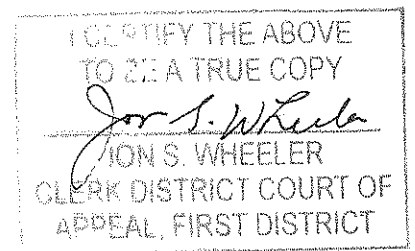 I CERTIFY THE ABOVE
TO BE A TRUE COPY
Jon S. Wheeler
JON S. WHEELER
CLERK DISTRICT COURT OF
APPEAL, FIRST DISTRICT